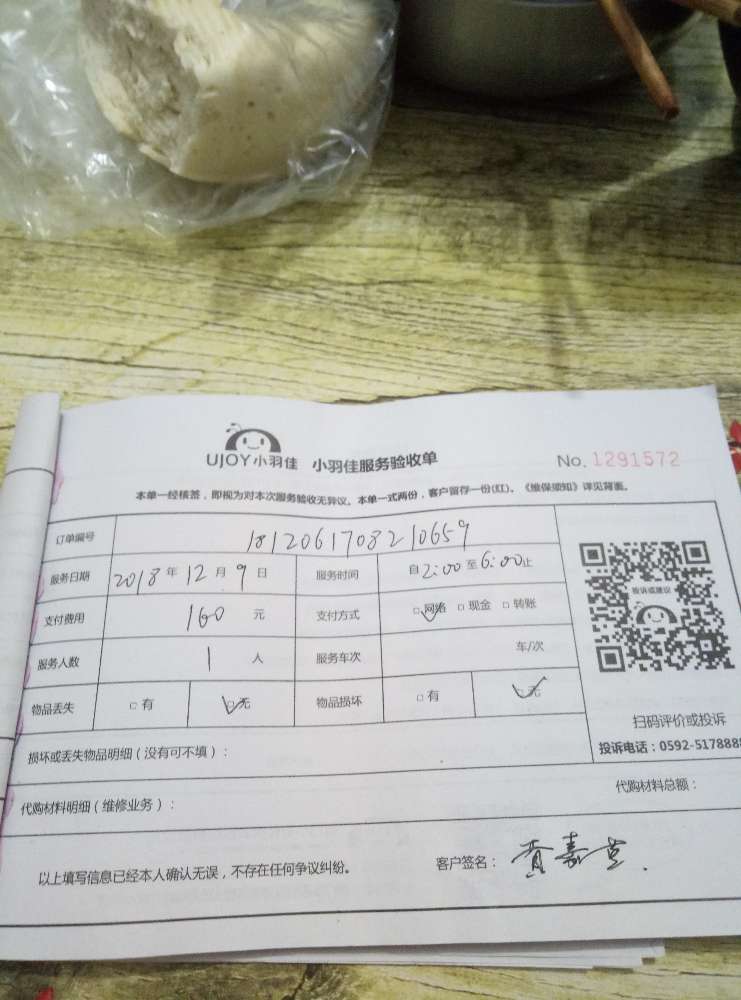 UJOY小羽佳 小羽佳服务验收单 No. 1291572
本单一经核签，即视为对本次服务验收无异议。本单一式两份，客户留存一份(红)。《维保须知》详见背面。
订单编号 1812061708210659
服务日期 2018年12月9日 服务时间 自2:00至6:00止
支付费用 160元 支付方式 □网络 □现金 □转账
服务人数 1人 服务车次 车/次
物品丢失 □有 □无 物品损坏 □有 □无
投诉或建议
扫码评价或投诉
投诉电话：0592-5178888
损坏或丢失物品明细（没有可不填）：
代购材料明细（维修业务）： 代购材料总额：
以上填写信息已经本人确认无误，不存在任何争议纠纷。 客户签名：